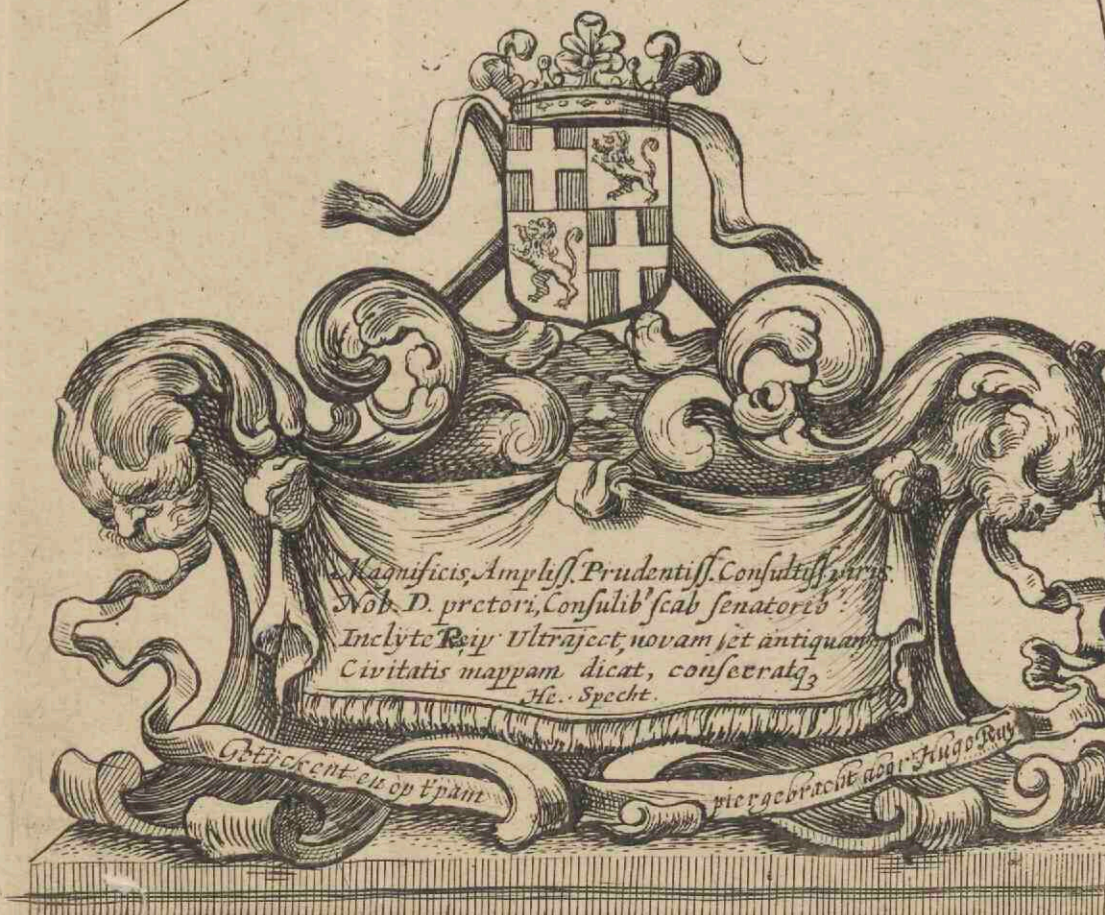 Magnificis, Ampliss. Prudentiss. Consultiss viris.
Nob. D. pretori, Consulib' scab senatorib:
Inclÿte Reip Ultraject, novam, et antiquam
Civitatis mappam dicat, consecratq₃
He. Specht.
Getÿckent en op t'pam
piergebracht door Hugo Ruÿ